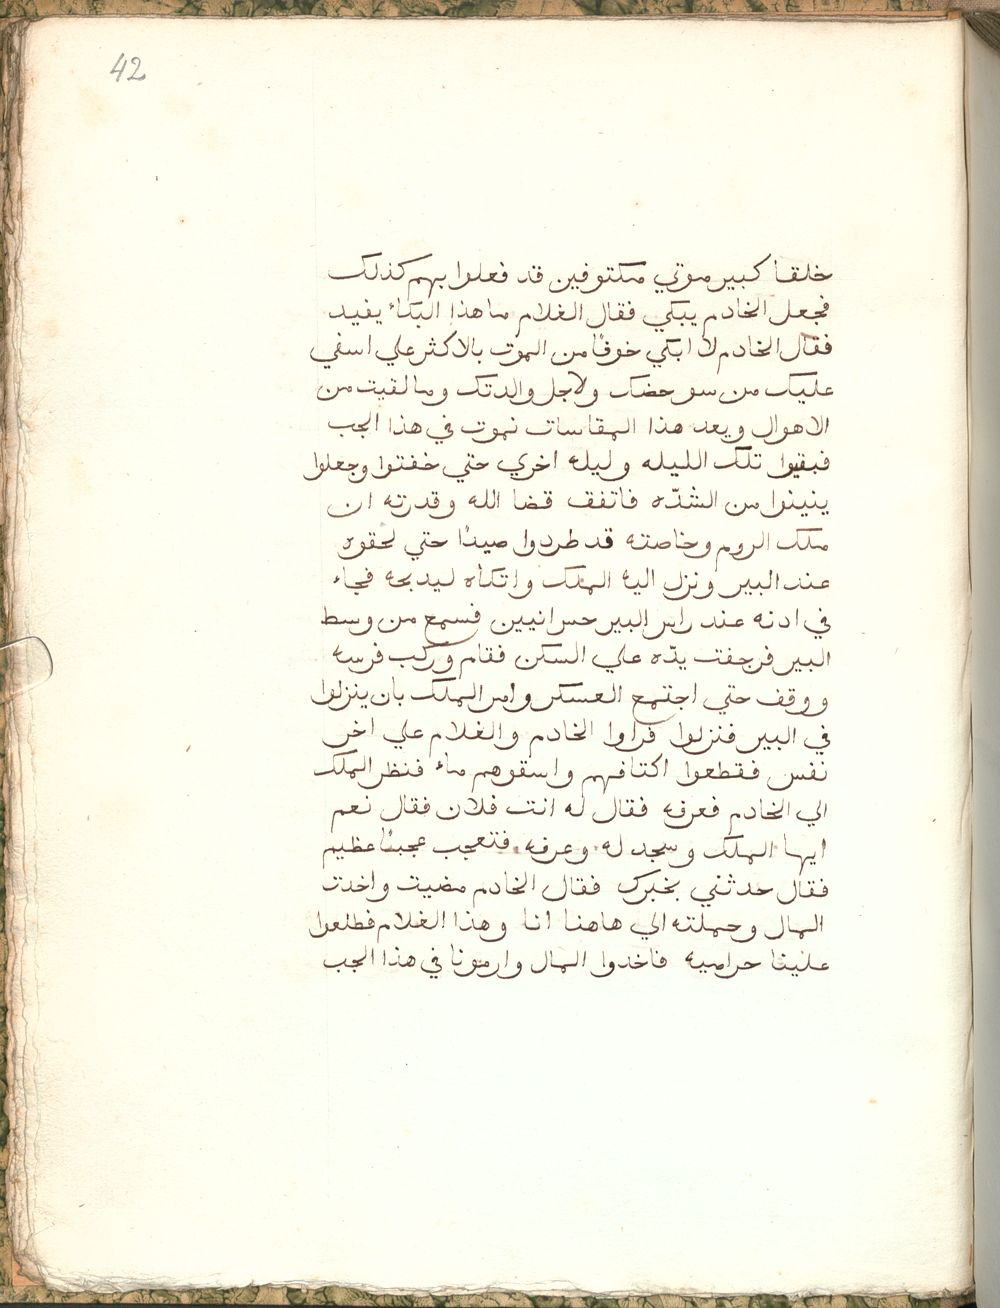 42
خلقا كبير موتي مكتوفين قد فعلوا بهم كذلك
فجعل الخادم يبكي فقال الغلام ما هذا البكاء يفيد
فقال الخادم لا ابكي خوفًا من الموت بالاكثر علي اسفي
عليك من سو حضك ولاجل والدتك وما لقيت من
الاهوال وبعد هذا المقاسات نموت في هذا الجب
فبقيوا تلك الليله وليله اخري حتي خفتوا وجعلوا
ينينوا من الشدّه فاتفق قضا الله وقدرته ان
ملك الروم وخاصته قد طردوا صيدًا حتي لحقوه
عند البير ونزل اليه الملك واتكاه ليدبحه فجاء
في ادنه عند راس البير حس انيين فسمع من وسط
البير فرجفت يدّه علي السكن فقام وركب فرسه
ووقف حتي اجتمع العسكر وامر الملك بان ينزلوا
في البير فنزلوا فراوا الخادم والغلام علي اخر
نفس فقطعوا اكتافهم واسقوهم ماء فنظر الملك
الي الخادم فعرفه فقال له انت فلان فقال نعم
ايها الملك وسجد له وعرفه فتعجب عجبًا عظيم
فقال حدثني بخبرك فقال الخادم مضيت واخدت
المال وحملته الي هاهنا انا وهذا الغلام فطلعوا
علينا حراميه فاخدوا المال وارمونا في هذا الجب